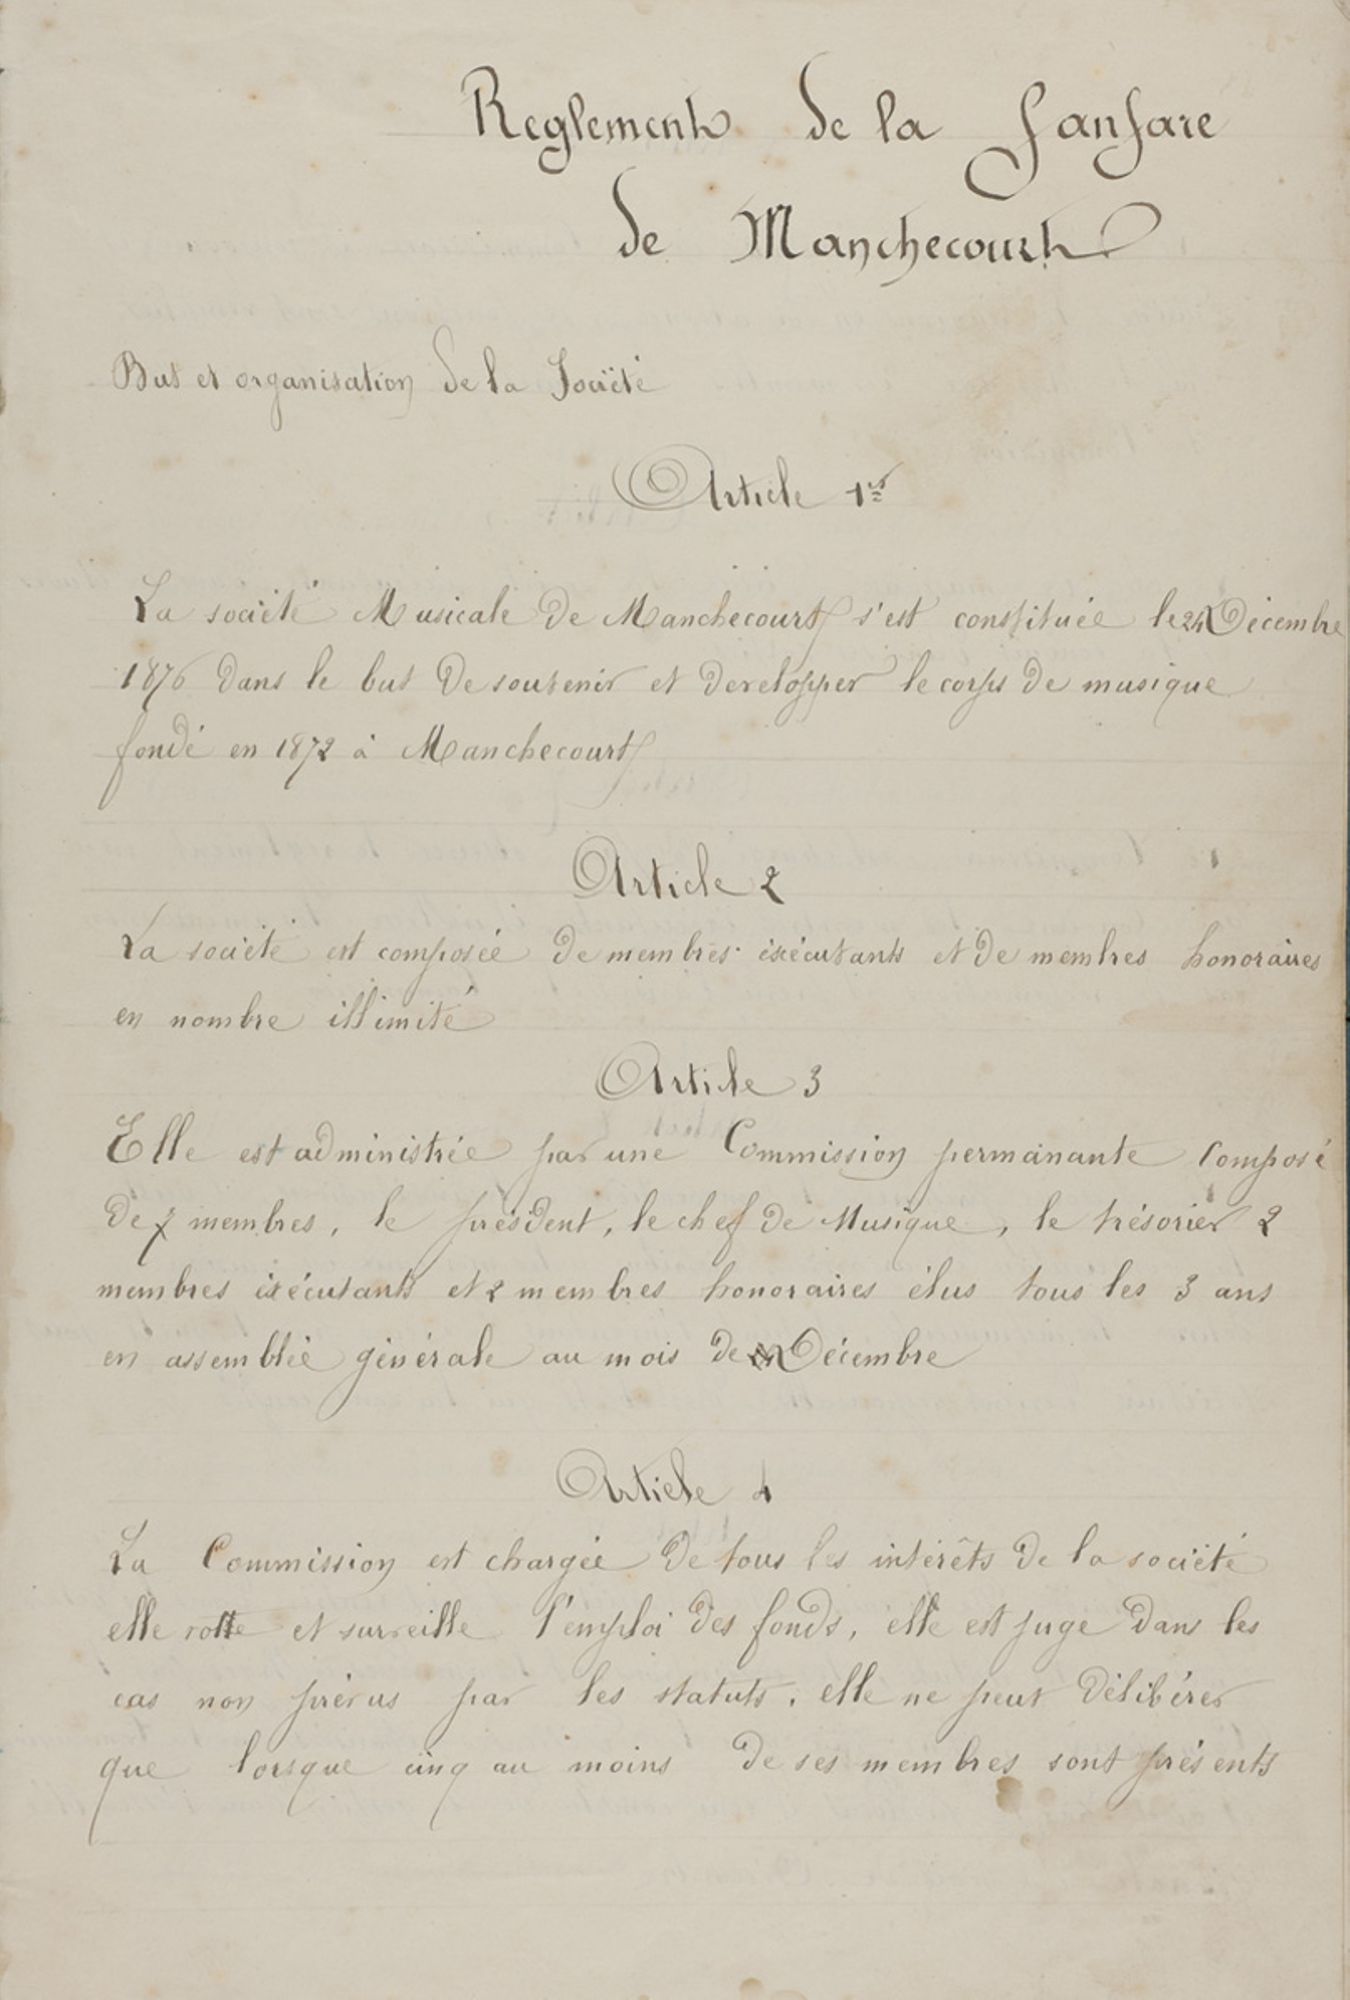 Reglement de la fanfare
de Manchecourt
But et organisation de la Société
Article 1er
La société Musicale de Manchecourt s'est constituée le 24 Décembre
1876 dans le but de soutenir et developper le corps de musique
fondé en 1872 à Manchecourt
Article 2
La société est composée de membres exécutants et de membres honoraires
en nombre illimité
Article 3
Elle est administrée par une Commission permanante Composé
de 7 membres, le président, le chef de Musique, le trésorier 2
membres exécutants et 2 membres honoraires élus tous les 3 ans
en assemblée générale au mois de Décembre
Article 4
La Commission est chargée de tous les intérêts de la société
elle votte et surveille l'emploi des fonds, elle est juge dans les
cas non prévus par les statuts. elle ne peut délibérer
que lorsque cinq au moins de ses membres sont présents